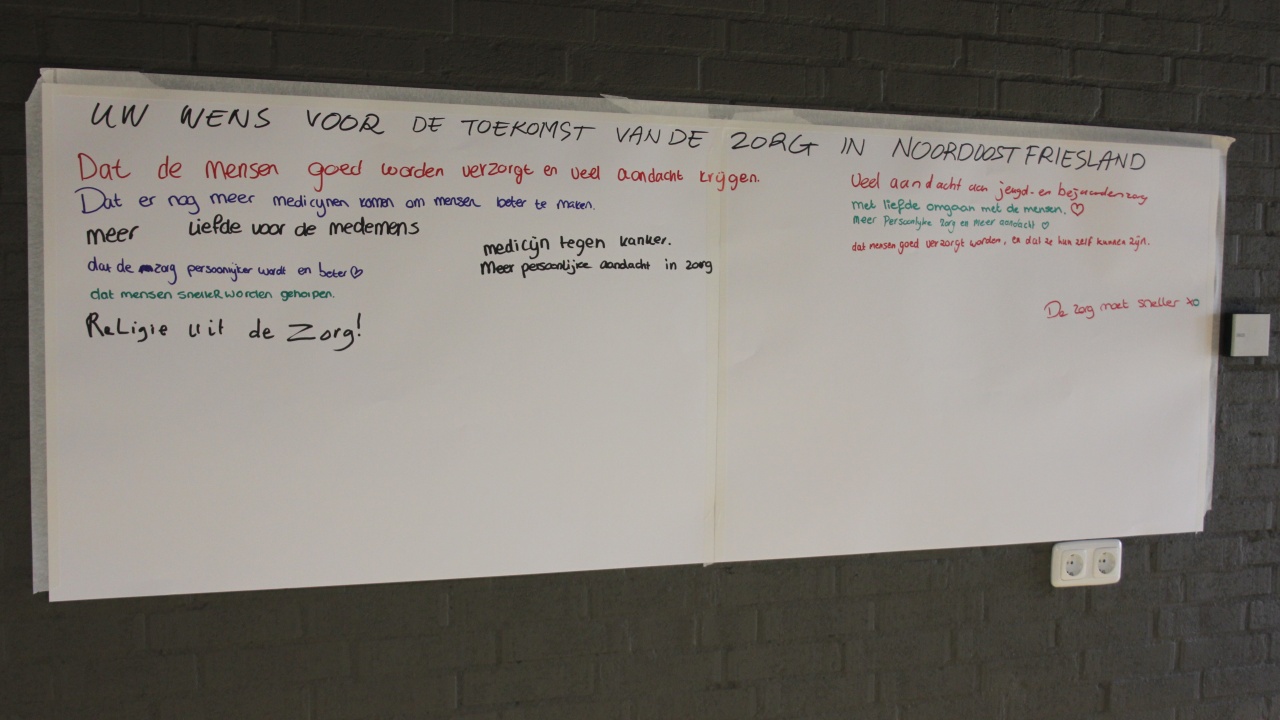 UW WENS VOOR DE TOEKOMST VAN DE ZORG IN NOORDOOST FRIESLAND
Dat de mensen goed worden verzorgt en veel aandacht krijgen.
Dat er nog meer medicijnen komen om mensen beter te maken.
meer liefde voor de medemens
dat de zorg persoonlijker wordt en beter♡
dat mensen sneller worden geholpen.
ReLigie uit de Zorg!
medicijn tegen kanker.
Meer persoonlijke aandacht in zorg
Veel aandacht aan jeugd- en bejaardenzorg
met liefde omgaan met de mensen. ♡
Meer Persoonlijke Zorg en Meer aandacht ♡
dat mensen goed verzorgt worden, en dat ze hun zelf kunnen zijn.
De zorg moet sneller xo